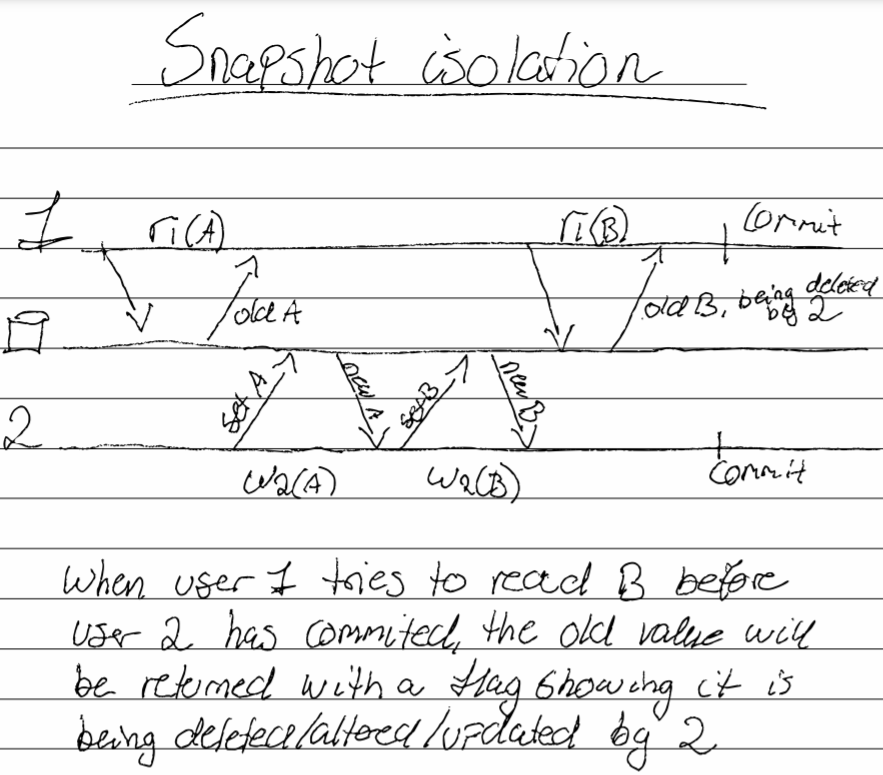 Snapshot isolation
1 r1(A) r1(B) Commit
old A old B, being deleted by 2
set A new A set B new B
2
w2(A) w2(B) Commit
When user 1 tries to read B before
user 2 has commited, the old value will
be returned with a flag showing it is
being deleted/altered/updated by 2